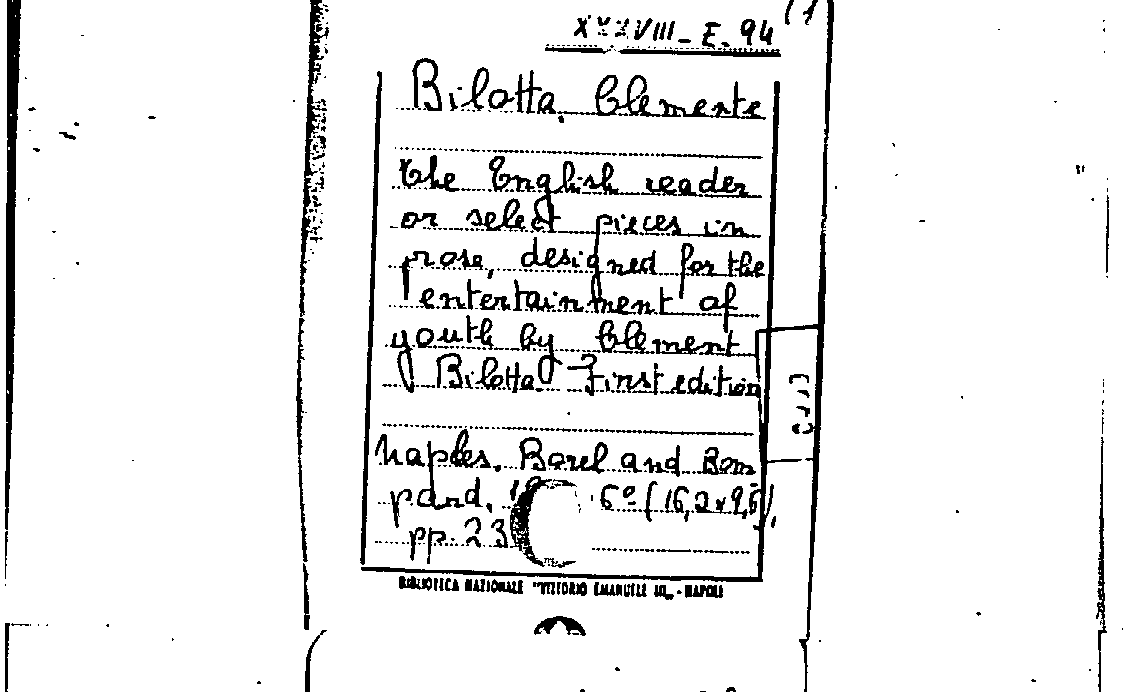 (1
XXXVIII-E-94
Bilotta, Clemente
The English reader
or select pieces in
prose, designed for the
entertainment of
youth by Clement
Bilotta - First edition
Naples. Borel and Bom
pard, 6º (16,2x9,5),
pp. 23
BIBLIOTECA NAZIONALE "VITTORIO EMANUELE III" - NAPOLI